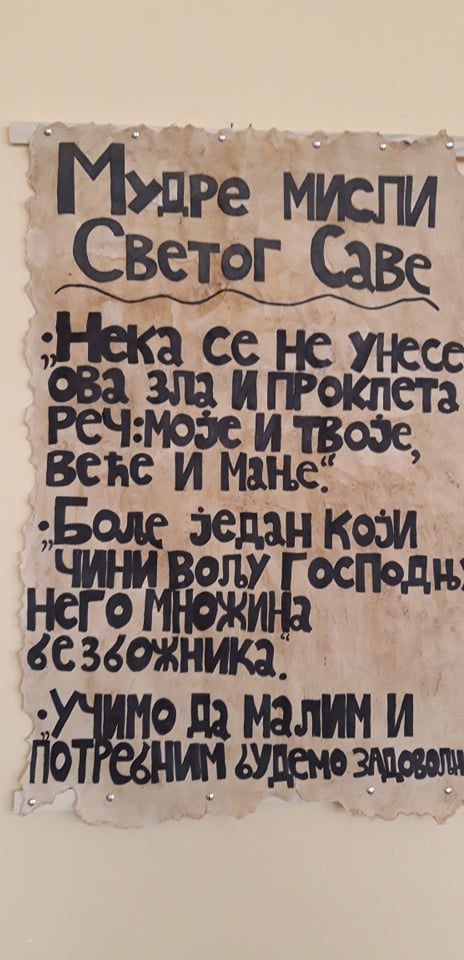 Мудре мисли
Светог Саве
„Нека се не унесе
ова зла и проклета
реч:моје и твоје,
веће и мање“.
„Боље један који
чини вољу Господњ
него множина
безбожника“.
„Учимо да малим и
потребним будемо задовољн